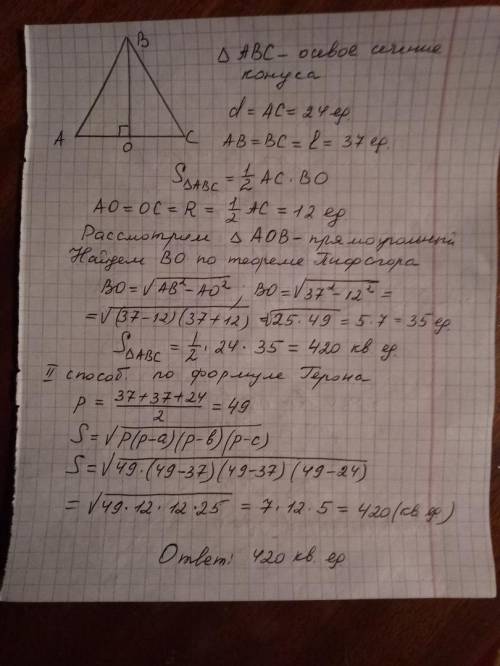 B
A
O
C
△ ABC - осевое сечение
конуса
d = AC = 24 ед.
AB = BC = ℓ = 37 ед.
S△ABC = 1/2 AC · BO
AO = OC = R = 1/2 AC = 12 ед
Рассмотрим △ AOB - прямоугольный
Найдем BO по теореме Пифагора
BO = √(AB² - AO²); BO = √(37² - 12²) =
= √((37-12)(37+12)) = √(25·49) = 5·7 = 35 ед.
S△ABC = 1/2 · 24 · 35 = 420 кв ед.
II способ. по формуле Герона
P = (37+37+24)/2 = 49
S = √(P(p-a)(p-b)(p-c))
S = √(49·(49-37)(49-37)(49-24))
= √(49·12·12·25) = 7·12·5 = 420 (кв. ед.)
Ответ: 420 кв. ед